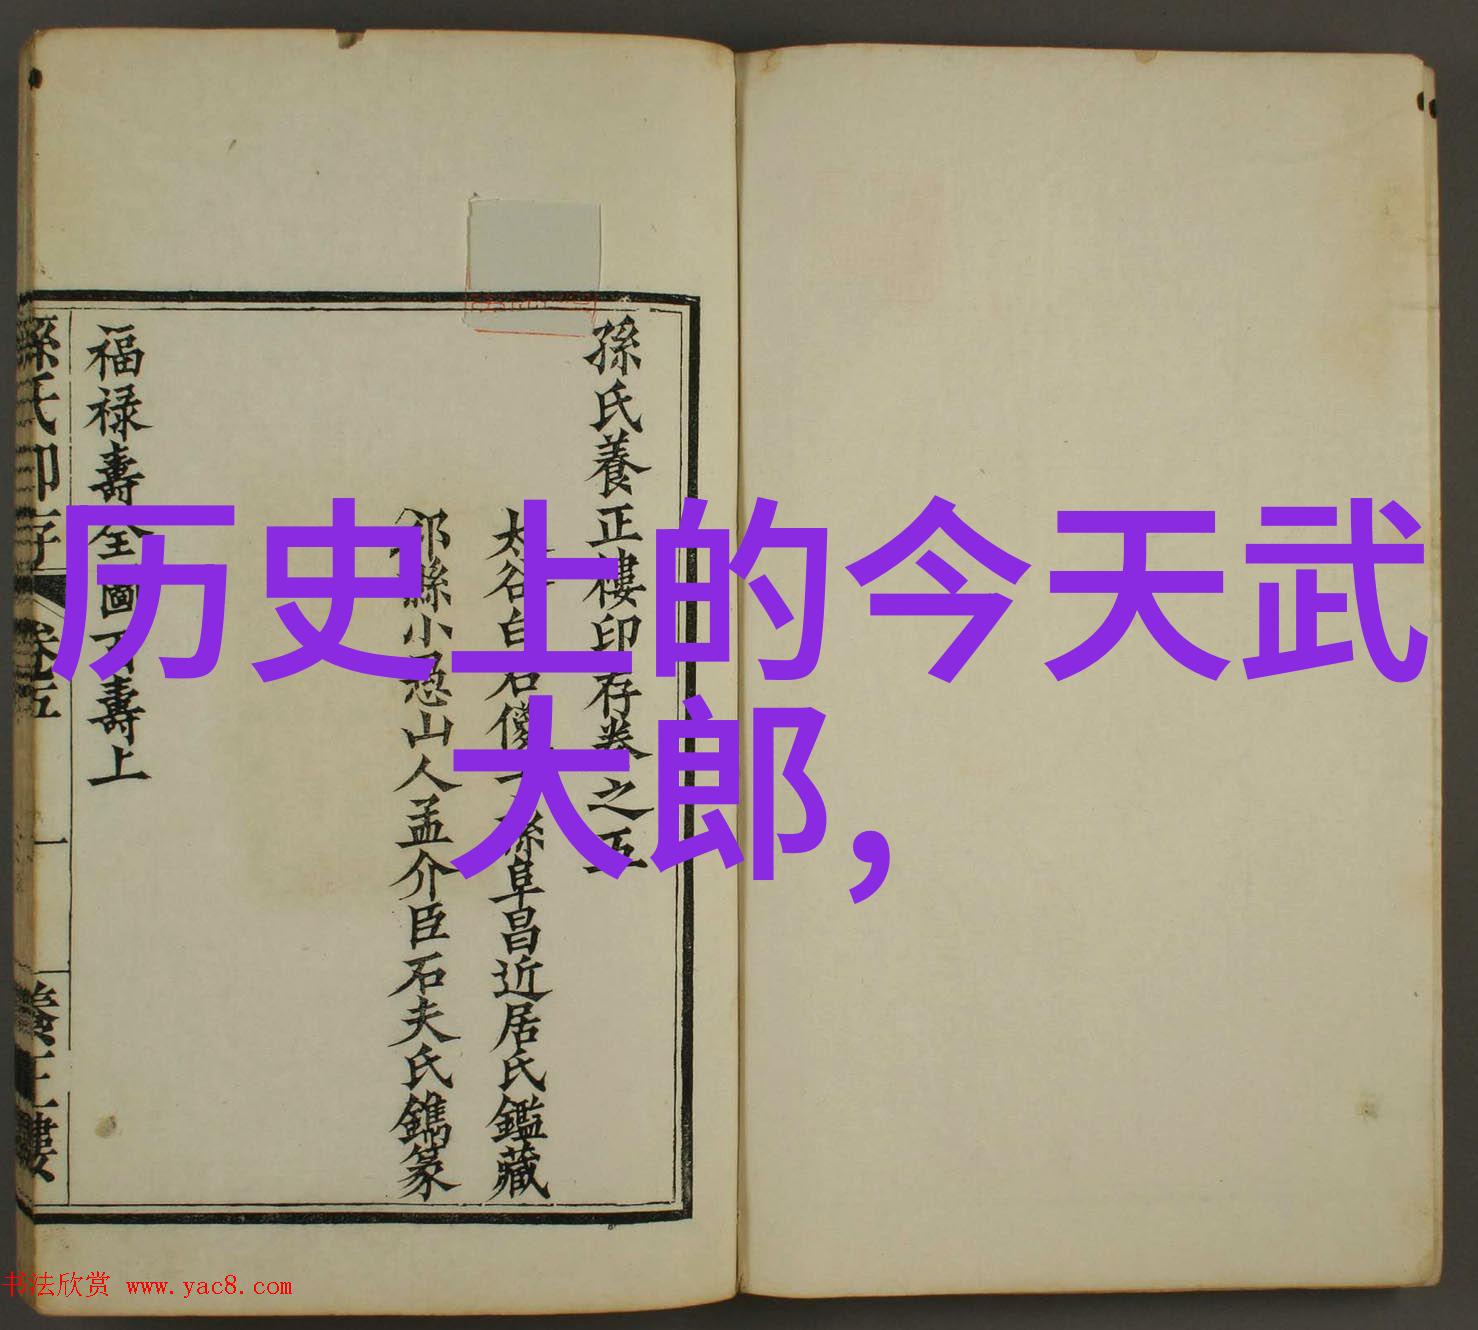 历史上的今天武
大郎,
孫氏養正樓印存卷之五
太谷白石傻 孫阜昌近居氏鑑藏
邠縣小憨山人孟介臣石夫氏鐫篆
福禄壽全圖百壽上
孫氏印存 卷五 一 養正樓
书法欣赏 www.yac8.com